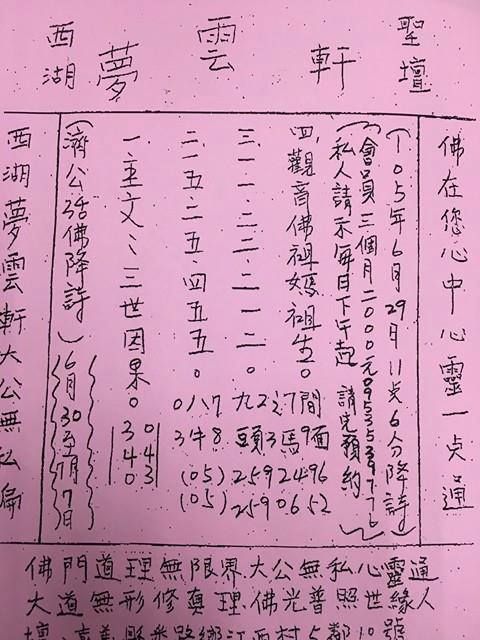 聖壇 軒 雲 夢 西湖
佛在您心中心靈一点通
(105年6月29月11点6分降詩)
會員三個月2000元0953539776
(私人請示每日下午起 請先預約)
四.觀音佛祖媽祖生。
三.一一.二二.二一二。
二.一五.二五.四五五。
一.主文:三世因果。
(濟公活佛降詩)6月30至7月7日
西湖夢雲軒大公無私扁
間面
27馬9
九頭3
087
3牛8
2592496
(05)2590652
(05)
043
340
佛門道理無限界大公無私心靈通
大道無形修真理.佛光普照世緣人